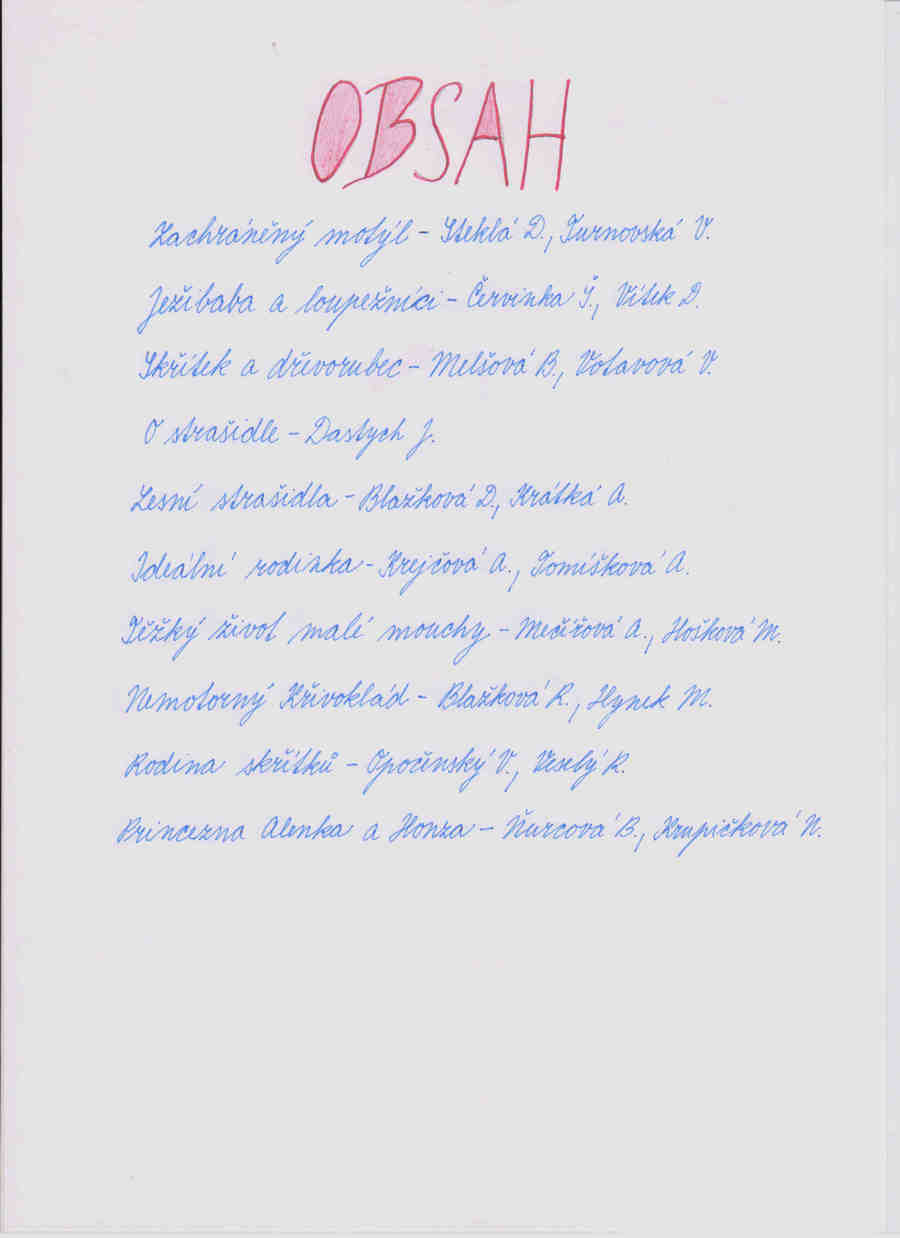 OBSAH
Zachráněný motýl - Steklá D., Turnovská V.
Ježibaba a loupežníci - Červinka Š., Vítek D.
Skřítek a dřevorubec - Melšová B., Votavová V.
O strašidle - Dastych J.
Lesní strašidla - Blažková D., Krátká A.
Ideální rodinka - Krejčová A., Tomíšková A.
Těžký život malé mouchy - Mečířová A., Hošková M.
Nemotorný Křivoklád - Blažková R., Hynek M.
Rodina skřítků - Opočenský V., Veselý R.
Princezna Alenka a Honza - B., Krupičková N.